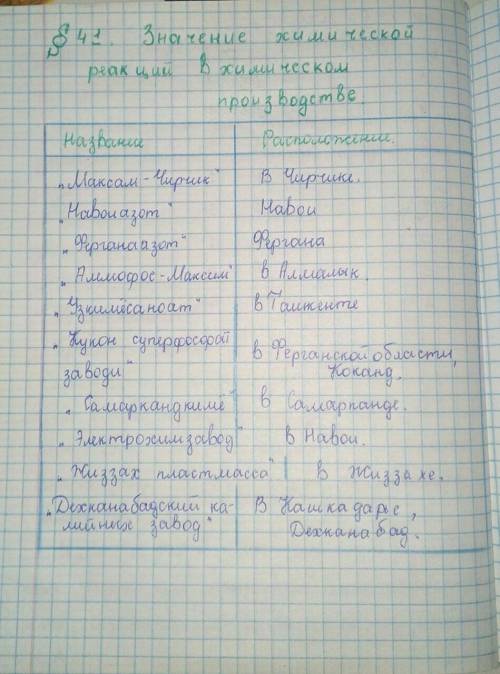 § 41. Значение химической
реакций в химическом
производстве.
Название Расположение.
„Максам-Чирчик" В Чирчике.
„Навоиазот" Навои
„Ферганаазот" Фергана
„Аммофос-Максим" в Алмалык.
„Узкимёсаноат" в Ташкенте
„Кукон суперфосфат
заводи" в Ферганской области,
Коканд.
„Самаркандкимё" в Самарканде.
„Электрохимзавод" в Навои.
„Жиззах пластмасса" в Жиззахе.
„Дехканабадский ка-
лийных завод" В Кашкадарье,
Дехканабад.